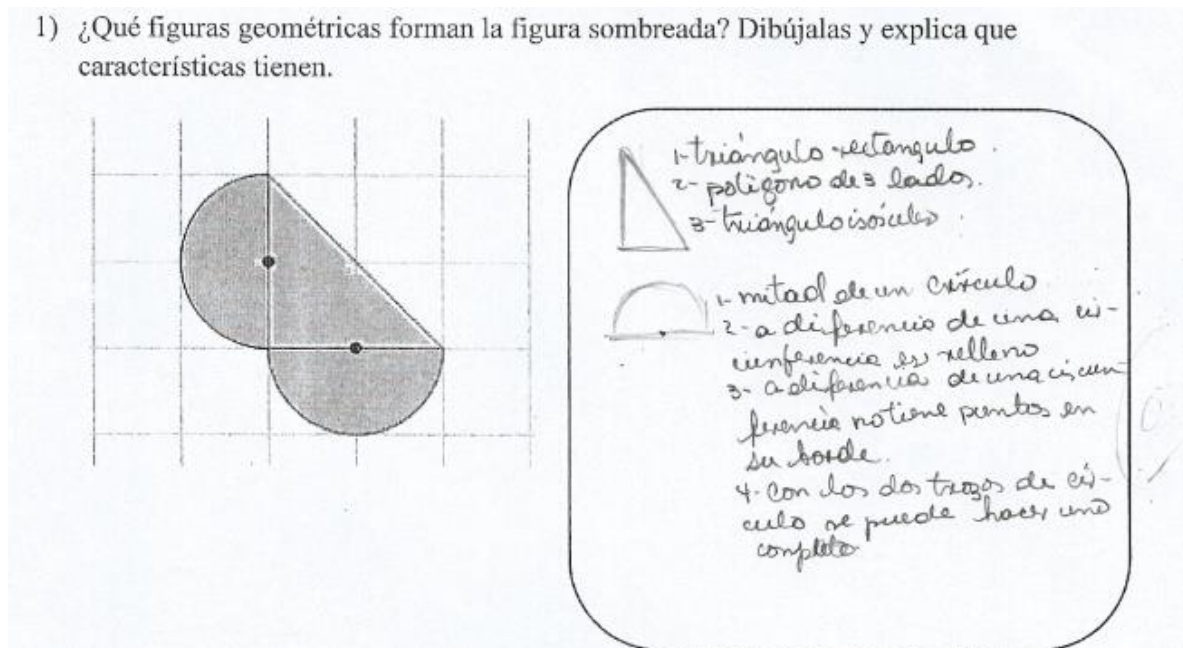 1) ¿Qué figuras geométricas forman la figura sombreada? Dibújalas y explica que
características tienen.
1- triángulo rectangulo.
2- polígono de 3 lados.
3- triángulo isósceles.
1- mitad de un círculo
2- a diferencia de una cir-
cunferencia es relleno
3- a diferencia de una circun
ferencia no tiene puntos en
su borde.
4- Con los dos trozos de cír-
culo se puede hacer uno
completo